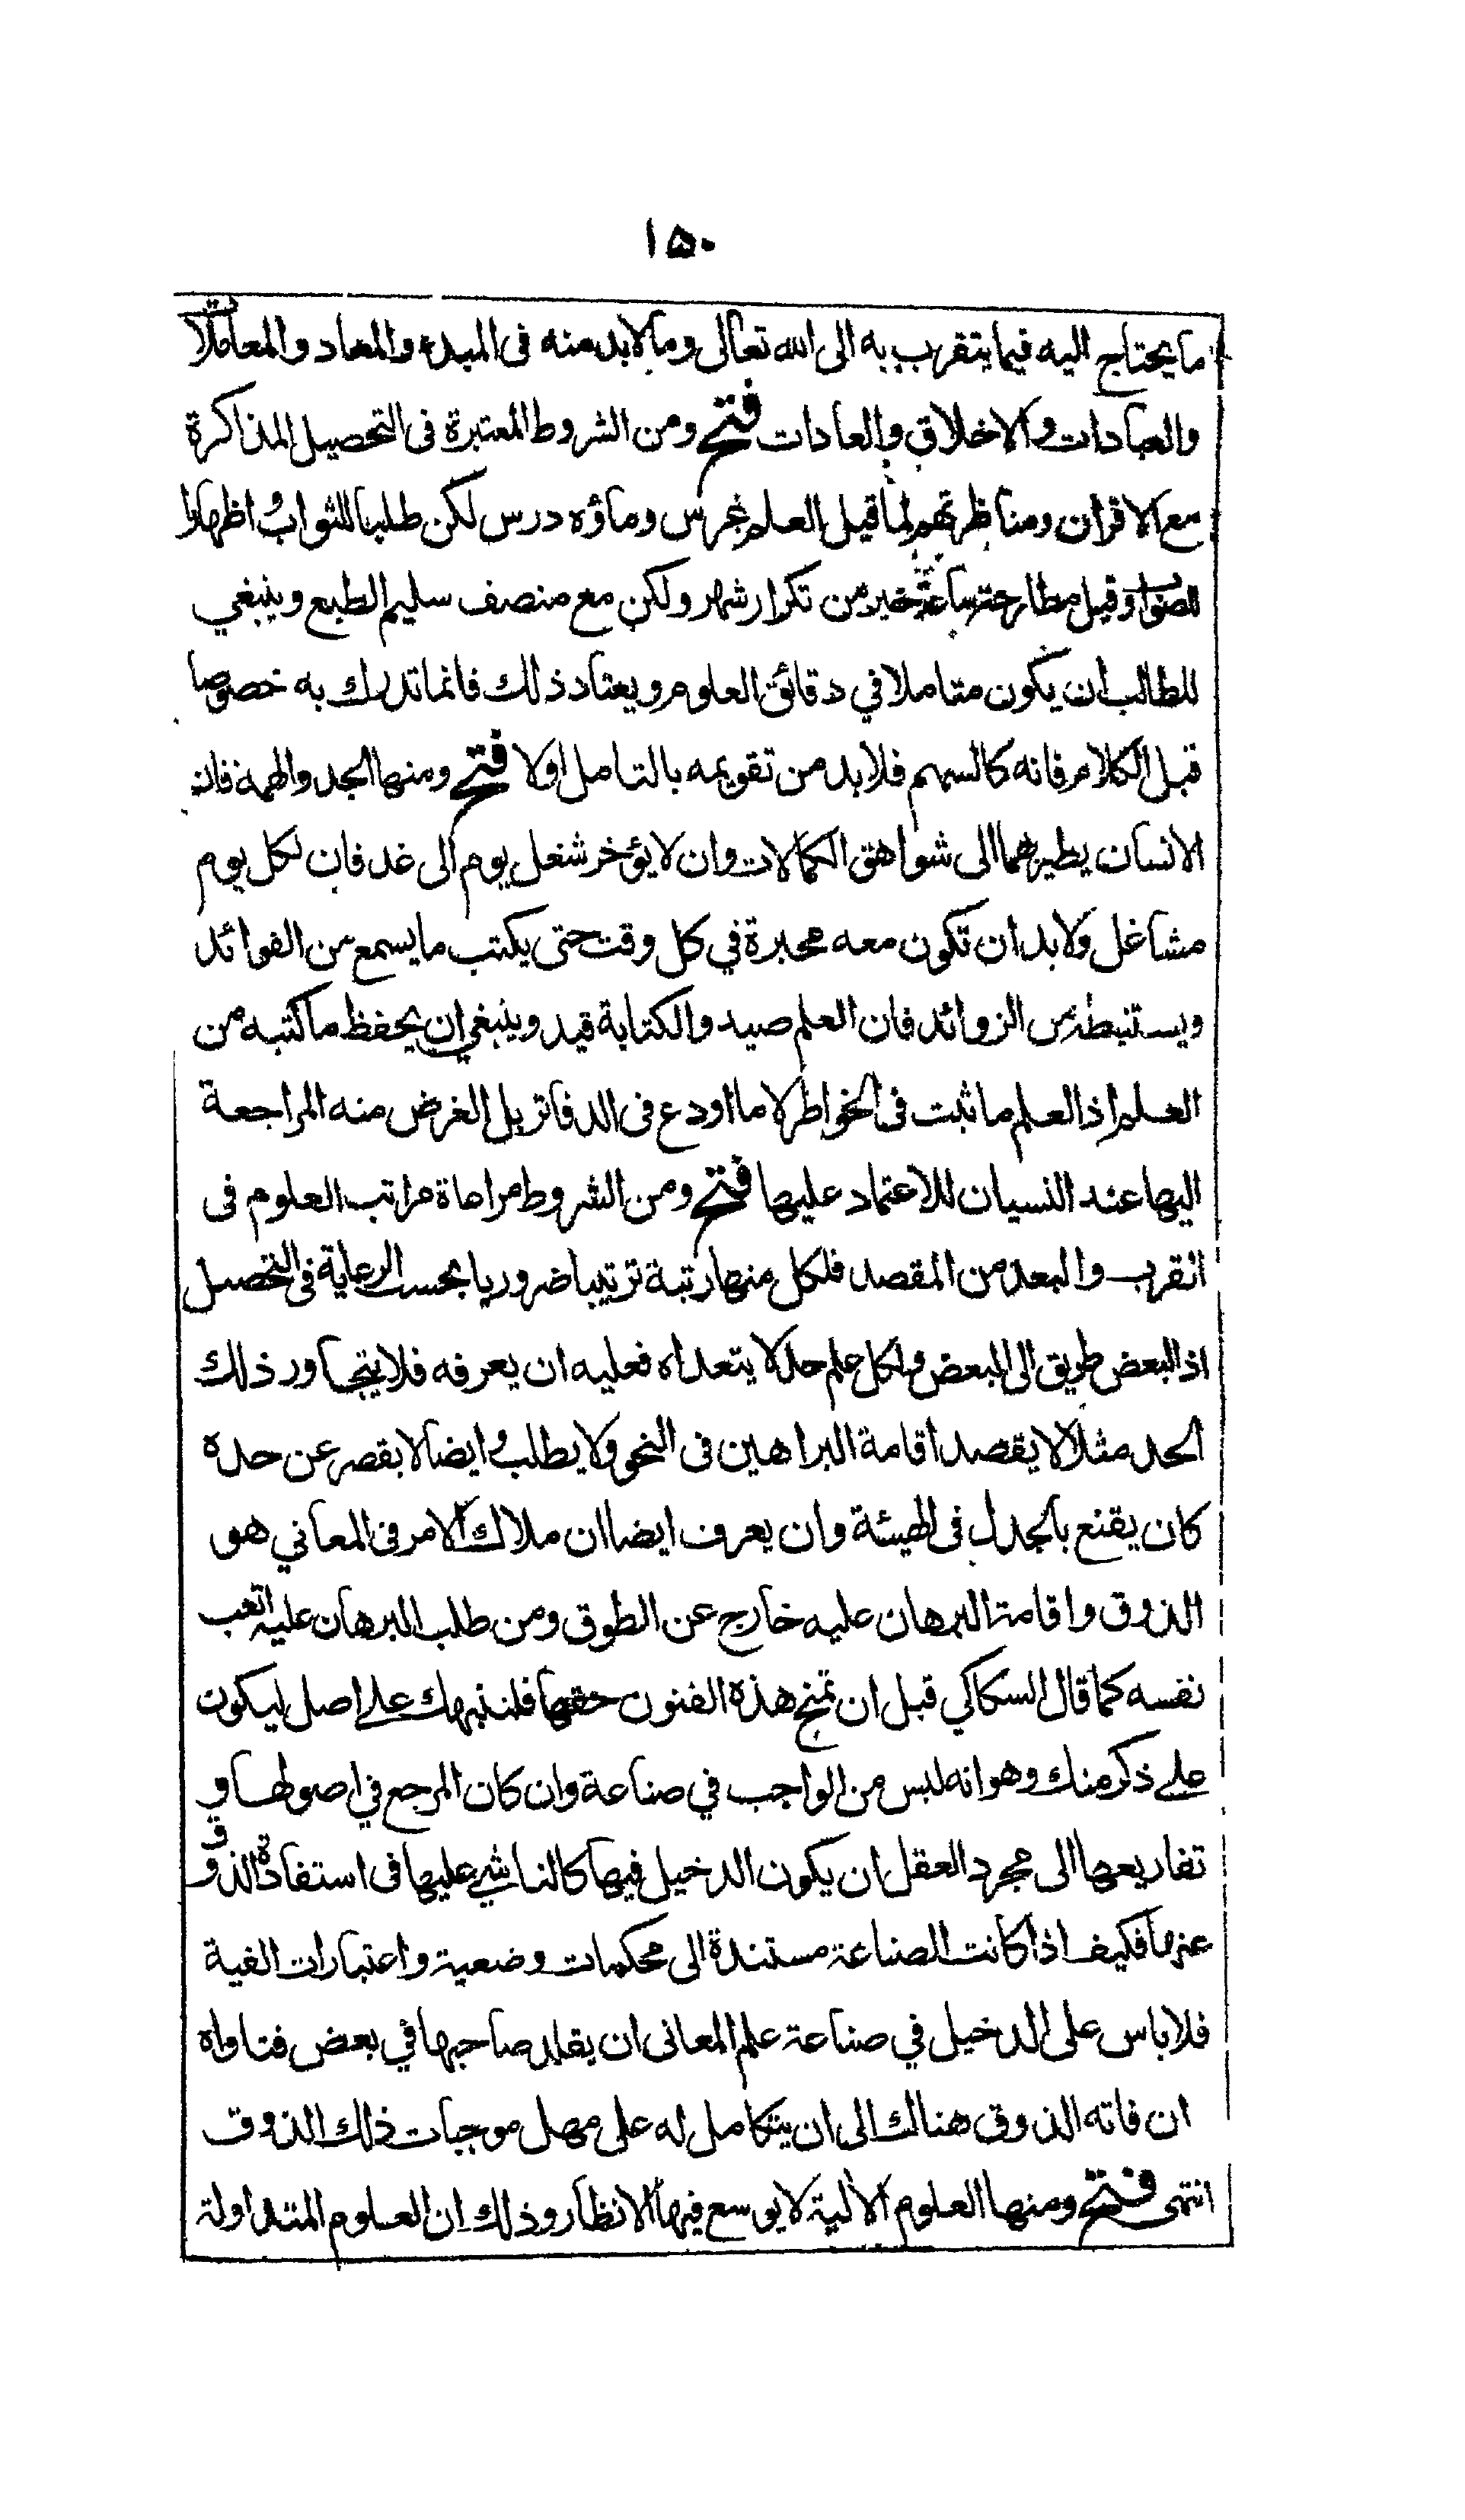 ١٥٠
ما يحتاج اليه فيما يتقرب به الى الله تعالى وما لابد منه فى المبدء والمعاد والمعاملات
والعبادات والاخلاق والعادات فتح ومن الشروط المعتبرة فى التحصيل المذاكرة
مع الاقران ومناظرتهم لما قيل العلم غرس وماؤه درس لكن طلبا للثواب واظهارا
للصواب وقيل مطارحة ساعة خير من تكرار شهر ولكن مع منصف سليم الطبع وينبغي
للطالب ان يكون متاملا في دقائق العلوم ويعتاد ذلك فانما تدرك به خصوصا
قبل الكلام فانه كالسهم فلا بد من تقويمه بالتامل اولا فتح ومنها الجد والهمة فان
الانسان يطير بهما الى شواهق الكمالات وان لا يؤخر شغل يوم الى غد فان لكل يوم
مشاغل ولابد ان تكون معه محبرة في كل وقت حتى يكتب ما يسمع من الفوائد
ويستنبطه من الزوائد فان العلم صيد والكتابة قيد وينبغي ان يحفظ ما كتبه من
العلم اذ العلم ما ثبت فى الخواطر لا ما اودع فى الدفاتر بل الغرض منه المراجعة
اليها عند النسيان لا للاعتماد عليها فتح ومن الشروط مراعاة مراتب العلوم فى
القرب والبعد من المقصد فلكل منها رتبة ترتيبا ضروريا بحسب الرعاية فى التحصيل
اذ البعض طريق الى البعض ولكل علم حد لا يتعداه فعليه ان يعرفه فلا يتجاوز ذلك
الحد مثلا لا يقصد اقامة البراهين فى النحو ولا يطلب وايضا لا يقصر عن حده
كان يقنع بالجدل فى الهيئة وان يعرف ايضا ان ملاك الامر فى المعاني هو
الذوق واقامة البرهان عليه خارج عن الطوق ومن طلب البرهان عليه اتعب
نفسه كما قال السكاكي قبل ان تمنح هذه الفنون حقها فلننبهك على اصل ليكون
على ذكر منك وهو انه ليس من الواجب في صناعة وان كان المرجع في اصولها و
تفاريعها الى مجرد العقل ان يكون الدخيل فيها كالناشي عليها فى استفادة الذوق
عنها فكيف اذا كانت الصناعة مستندة الى محكمات وضعية واعتبارات الفية
فلا باس على الدخيل في صناعة علم المعانى ان يقلد صاحبها في بعض فتاواه
ان فاته الذوق هناك الى ان يتكامل له على مهل موجبات ذلك الذوق
انتهى فتح ومنها العلوم الالية لا يوسع فيها الانظار وذلك ان العلوم المتداولة